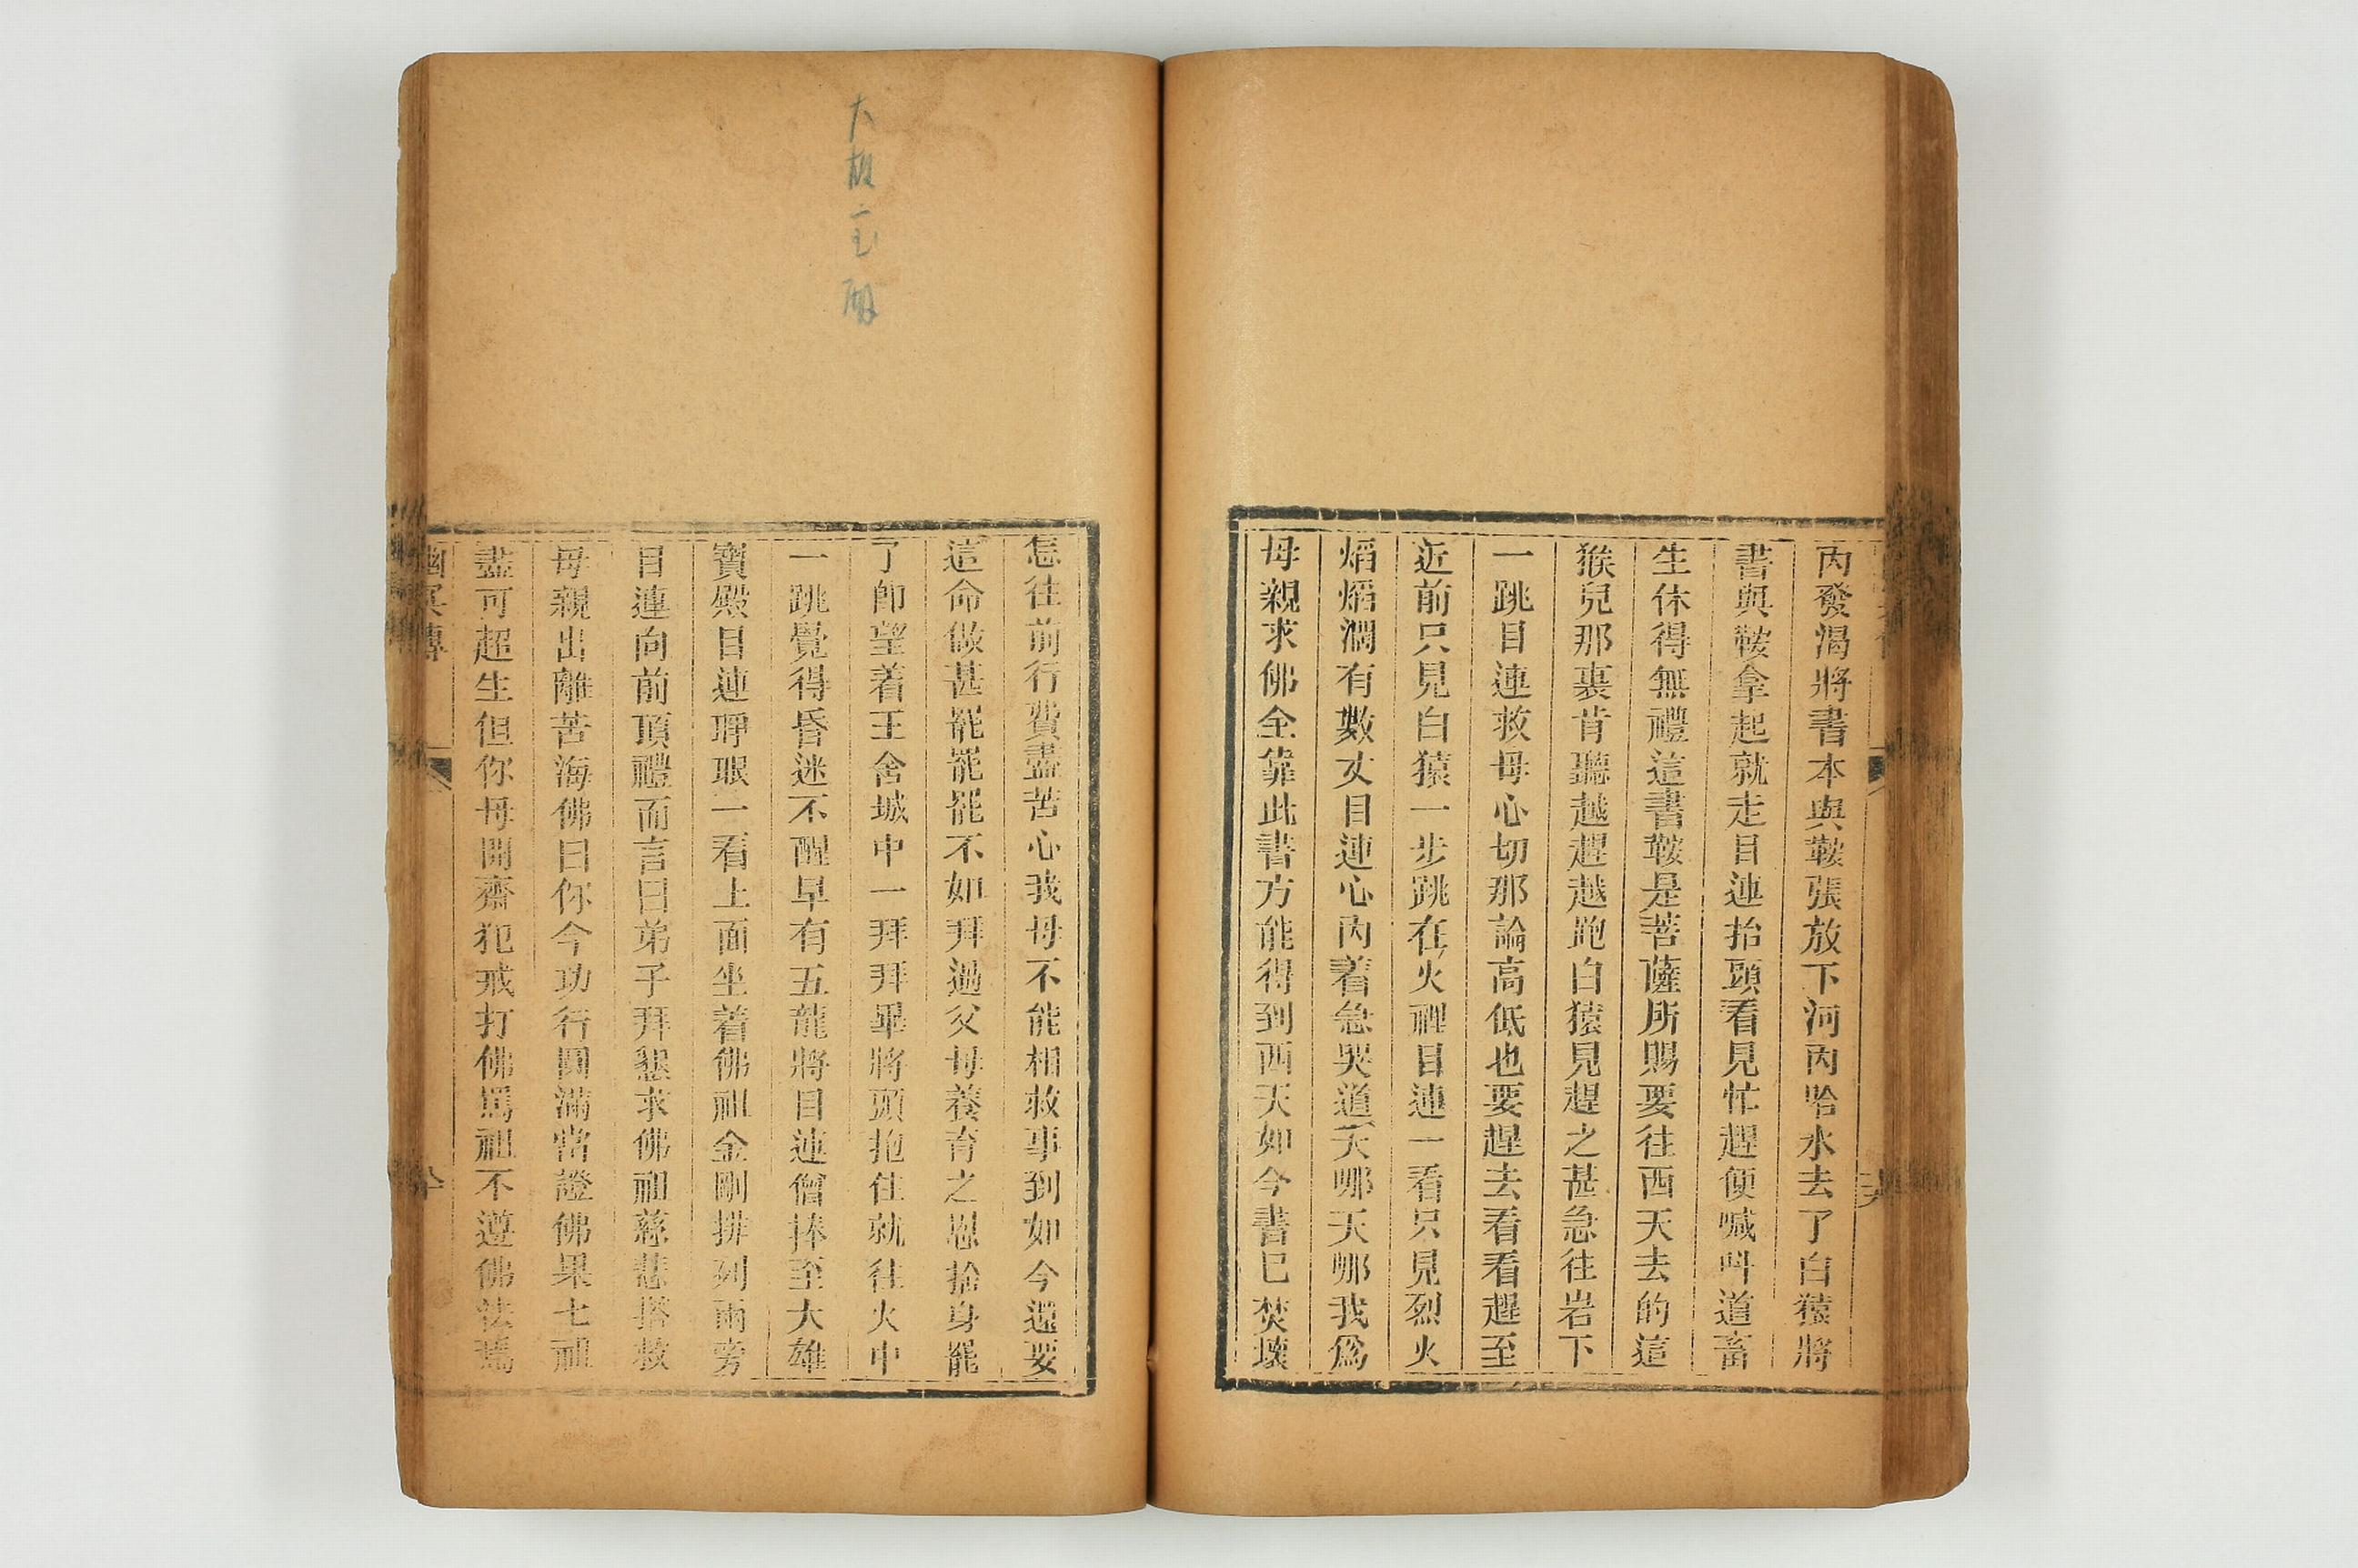 內發渴將書本與鞍張放下河內哈水去了白猿將
書與鞍拿起就走目連抬頭看見忙趕便喊呌道畜
生休得無禮這書鞍是菩薩所賜要往西天去的這
猴兒那裏肯聽越趕越跑白猿見趕之甚急往岩下
一跳目連救母心切那論高低也要趕去看看趕至
近前只見白猿一步跳在火裡目連一看只見烈火
熖熖濶有數丈目連心內着急哭道天哪天哪我爲
母親求佛全靠此書方能得到西天如今書已焚壞
怎往前行費盡苦心我母不能相救事到如今還要
這命做甚罷罷罷不如拜過父母養育之恩捨身罷
了卽望着王舍城中一拜拜畢將頭抱住就往火中
一跳覺得昏迷不醒早有五龍將目連僧捧至大雄
寶殿目連睜眼一看上面坐着佛祖金剛排列兩旁
目連向前頂禮而言曰弟子拜懇求佛祖慈悲搭救
母親出離苦海佛曰你今功行圓滿當證佛果七祖
盡可超生但你母開齋犯戒打佛罵祖不遵佛法
幽冥傳
大雄宝殿